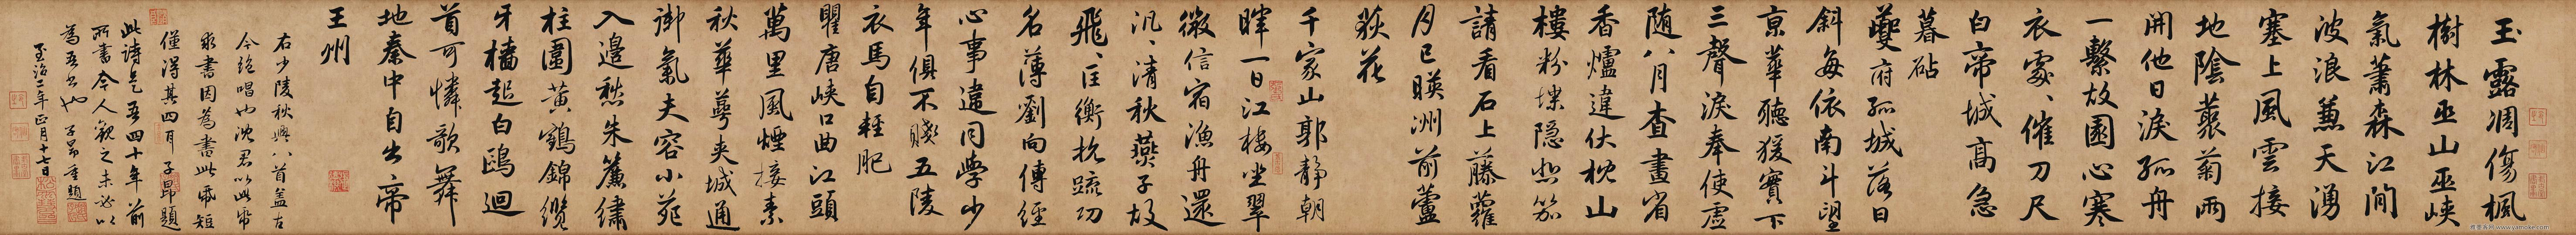 玉露凋傷楓
樹林巫山巫峽
氣蕭森江間
波浪蒹天湧
塞上風雲接
地陰藂菊兩
開他日淚孤舟
一繫故園心寒
衣處〻催刀尺
白帝城高急
暮砧
夔府孤城落日
斜每依南斗望
京華聽猨實下
三聲淚奉使虛
随八月查畫省
香爐違伏枕山
樓粉堞隐悲笳
請看石上藤蘿
月已暎洲前蘆
荻花
千家山郭靜朝
暉一日江樓坐翠
微信宿漁舟還
汎〻清秋燕子故
飛〻匡衡抗疏功
名薄劉向傳經
心事違同學少
年俱不賤五陵
衣馬自輕肥
瞿唐峽口曲江頭
萬里風煙接素
秋華萼夾城通
御氣夫容小苑
入邊愁朱簾繡
柱圍黃鶴錦纜
牙檣起白鷗迴
首可憐歌舞
地秦中自出帝
王州
右少陵秋興八首蓋古
今絕唱也沈君以此紙
求書因為書此紙短
僅得其四耳 子昂題
此詩是吾四十年前
所書今人觀之未必以
為吾書也 子昂重題
至治二年正月十七日